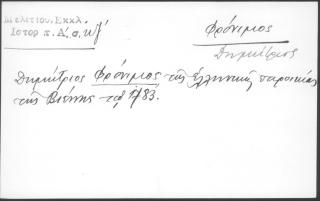 Μελετίου, Εκκλ.
Ιστορ τ. Α', σ.
Φρόνιμος
Δημήτριος
Δημήτριος Φρόνιμος της Ελληνικής παροικίας
της Βιέννης τω 1783.